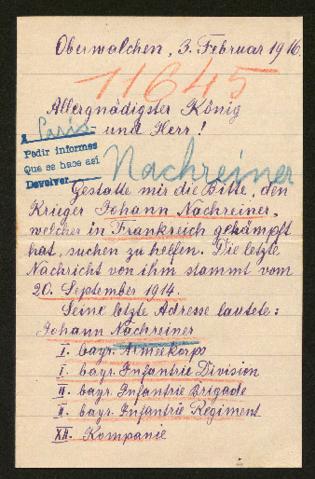 Oberwalchen, 3. Februar 1916.
11645
Allergnädigster König
und Herr!
A Paris
Pedir informes
Que se hase asi
Devolver
Nachreiner
Gestatte mir die Bitte, den
Krieger Johann Nachreiner,
welcher in Frankreich gekämpft
hat, suchen zu helfen. Die letzte
Nachricht von ihm stammt vom
20. September 1914.
Seine letzte Adresse lautete:
Johann Nachreiner
I. bayr. Armeekorps
I. bayr. Infantrie Division
II. bayr. Infantrie Brigade
II. bayr. Infantrie Regiment
XII. Kompanie